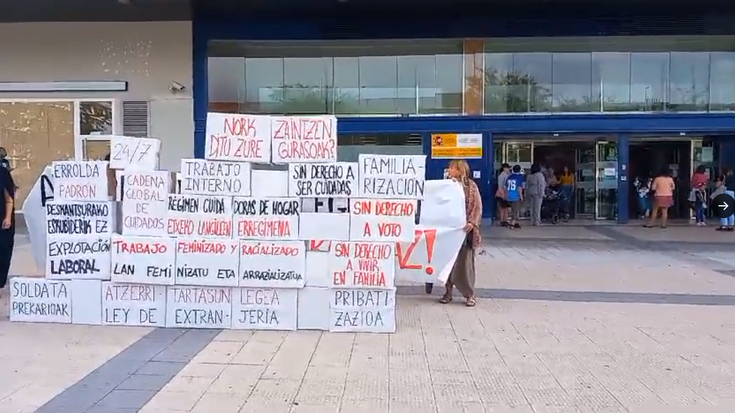 NORK
DITU ZURE
ZAINTZEN
GURASOAK?
24/7
ERROLDA
PADRON
CADENA
GLOBAL
DE
CUIDADOS
TRABAJO
INTERNO
SIN DERECHO A
SER CUIDADAS
FAMILIA-
RIZACION
DESMANTSURAKO
ESKUBIDERIK EZ
REGIMEN CUIDA
ETXEKO LANGILEEN
DORAS DE HOGAR
ERREGIMENA
SIN DERECHO
A VOTO
EXPLOTACIÓN
LABORAL
TRABAJO
LAN FEMI
FEMINIZADO Y
NIZATU ETA
RACIALIZADO
ARRAZIALIZATUA
SIN DERECHO
A VIVIR
EN FAMILIA
SOLDATA
PREKARIOAK
ATZERRI
LEY DE
TARTASUN
EXTRAN-
LEGEA
JERIA
PRIBATI
ZAZIOA